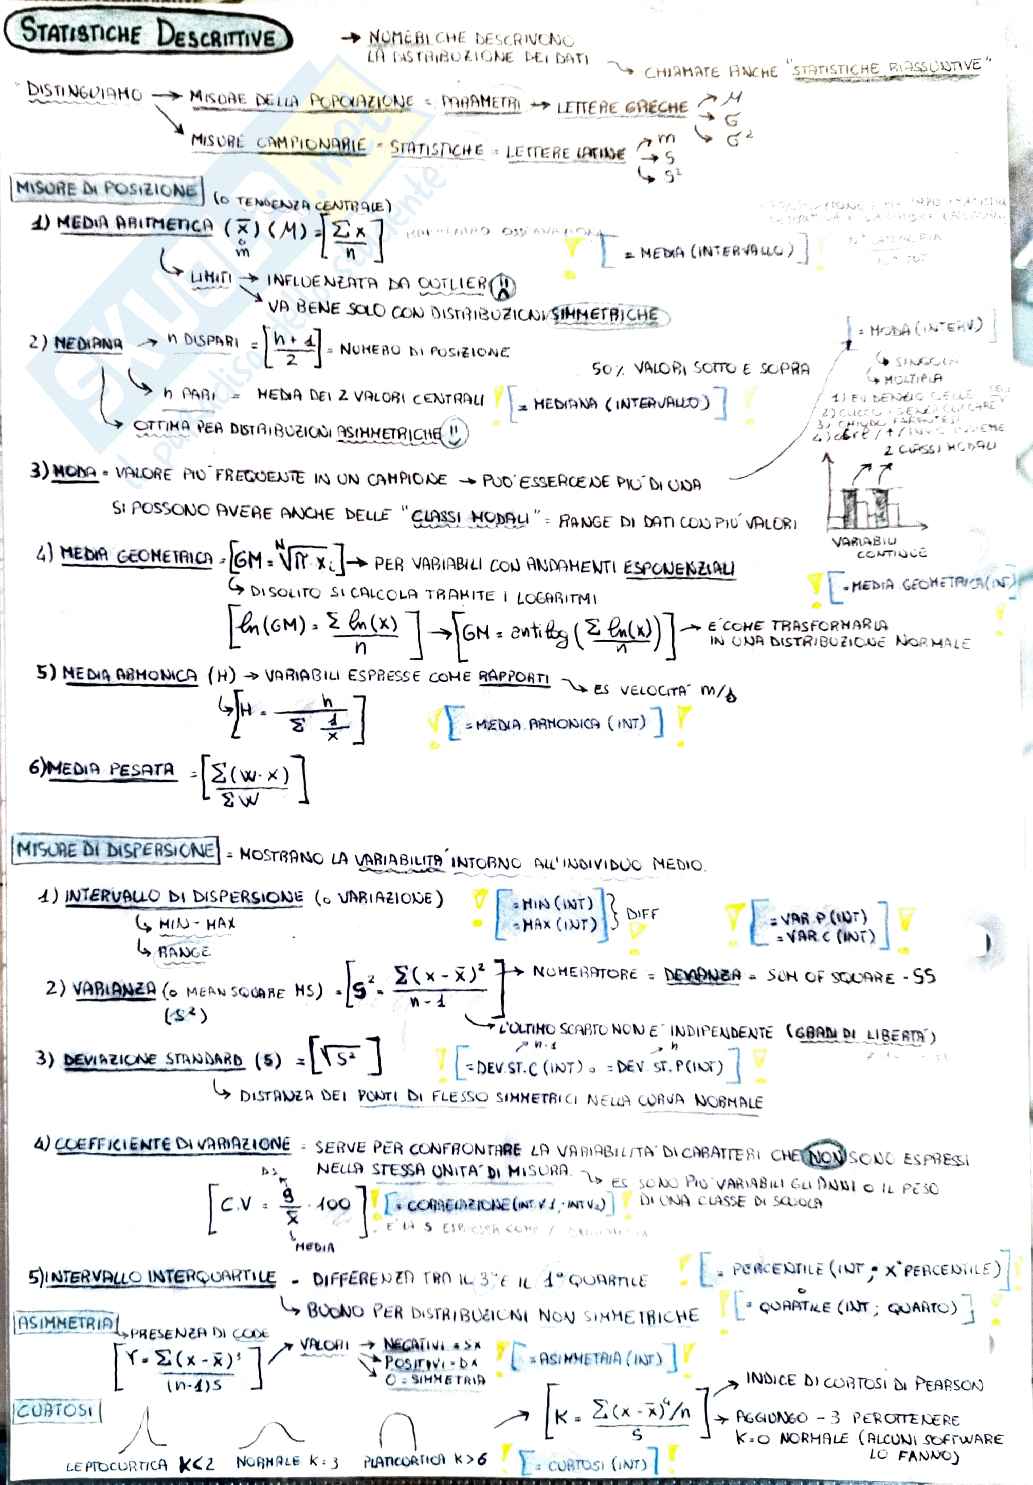 STATISTICHE DESCRITTIVE
→ NUMERI CHE DESCRIVONO
LA DISTRIBUZIONE DEI DATI
→ CHIAMATE ANCHE "STATISTICHE RIASSUNTIVE"
DISTINGUIAMO → MISURE DELLA POPOLAZIONE = PARAMETRI → LETTERE GRECHE → μ
→ σ
→ σ²
→ MISURE CAMPIONARIE = STATISTICHE = LETTERE LATINE → m
→ s
→ s²
MISURE DI POSIZIONE (O TENDENZA CENTRALE)
1) MEDIA ARITMETICA (x̄) (μ) = [Σx/n]
m
[= MEDIA (INTERVALLO)]
→ LIMITI → INFLUENZATA DA OUTLIER
→ VA BENE SOLO CON DISTRIBUZIONI SIMMETRICHE
2) MEDIANA → n DISPARI = [n+1/2] = NUMERO DI POSIZIONE
50% VALORI SOTTO E SOPRA
→ n PARI = MEDIA DEI 2 VALORI CENTRALI [= MEDIANA (INTERVALLO)]
→ OTTIMA PER DISTRIBUZIONI ASIMMETRICHE
[= MODA (INTERV)]
→ SINGOLA
→ MULTIPLA
2 CLASSI MODALI
3) MODA = VALORE PIÙ FREQUENTE IN UN CAMPIONE → PUÒ ESSERCENE PIÙ DI UNA
SI POSSONO AVERE ANCHE DELLE "CLASSI MODALI" = RANGE DI DATI CON PIÙ VALORI
VARIABILI
CONTINUE
4) MEDIA GEOMETRICA = [GM = ᴺ√π·xᵢ] → PER VARIABILI CON ANDAMENTI ESPONENZIALI
[= MEDIA GEOMETRICA (INT)]
→ DI SOLITO SI CALCOLA TRAMITE I LOGARITMI
[ln(GM) = Σ ln(x)/n] → [GM = antilog (Σ ln(x)/n)] → È COME TRASFORMARLA
IN UNA DISTRIBUZIONE NORMALE
5) MEDIA ARMONICA (H) → VARIABILI ESPRESSE COME RAPPORTI → ES VELOCITÀ m/s
→ [H = n/Σ 1/x] [= MEDIA.ARMONICA (INT)]
6) MEDIA PESATA = [Σ(w·x)/Σw]
MISURE DI DISPERSIONE = MOSTRANO LA VARIABILITÀ INTORNO ALL'INDIVIDUO MEDIO.
1) INTERVALLO DI DISPERSIONE (O VARIAZIONE) [= MIN (INT)
= MAX (INT)] DIFF
[= VAR.P (INT)
= VAR.C (INT)]
→ MIN - MAX
→ RANGE
2) VARIANZA (O MEAN SQUARE MS) = [s² = Σ(x-x̄)²/n-1] → NUMERATORE = DEVIANZA = SUM OF SQUARE - SS
(s²)
→ L'ULTIMO SCARTO NON È INDIPENDENTE (GRADI DI LIBERTÀ)
3) DEVIAZIONE STANDARD (s) = [√s²] [= DEV.ST.C (INT) o = DEV.ST.P (INT)]
n-1
n
→ DISTANZA DEI PUNTI DI FLESSO SIMMETRICI NELLA CURVA NORMALE
4) COEFFICIENTE DI VARIAZIONE = SERVE PER CONFRONTARE LA VARIABILITÀ DI CARATTERI CHE NON SONO ESPRESSI
NELLA STESSA UNITÀ DI MISURA. → ES SONO PIÙ VARIABILI GLI ANNI O IL PESO
DI UNA CLASSE DI SCUOLA
DS
[C.V = s/x̄ · 100] [= CORRELAZIONE (INT V1; INT V2)]
MEDIA
5) INTERVALLO INTERQUARTILE = DIFFERENZA TRA IL 3° E IL 1° QUARTILE [= PERCENTILE (INT; X° PERCENTILE)]
o
→ BUONO PER DISTRIBUZIONI NON SIMMETRICHE [= QUARTILE (INT; QUARTO)]
ASIMMETRIA → PRESENZA DI CODE
[γ = Σ(x-x̄)³/(n-1)s] → VALORI → NEGATIVI = SX
→ POSITIVI = DX
→ 0 = SIMMETRIA
[= ASIMMETRIA (INT)]
CURTOSI
LEPTOCURTICA K<2 NORMALE K=3 PLATICURTICA K>6
→ [K = Σ(x-x̄)⁴/n/s] → INDICE DI CURTOSI DI PEARSON
→ AGGIUNGO -3 PER OTTENERE
K=0 NORMALE (ALCUNI SOFTWARE
LO FANNO)
[= CURTOSI (INT)]